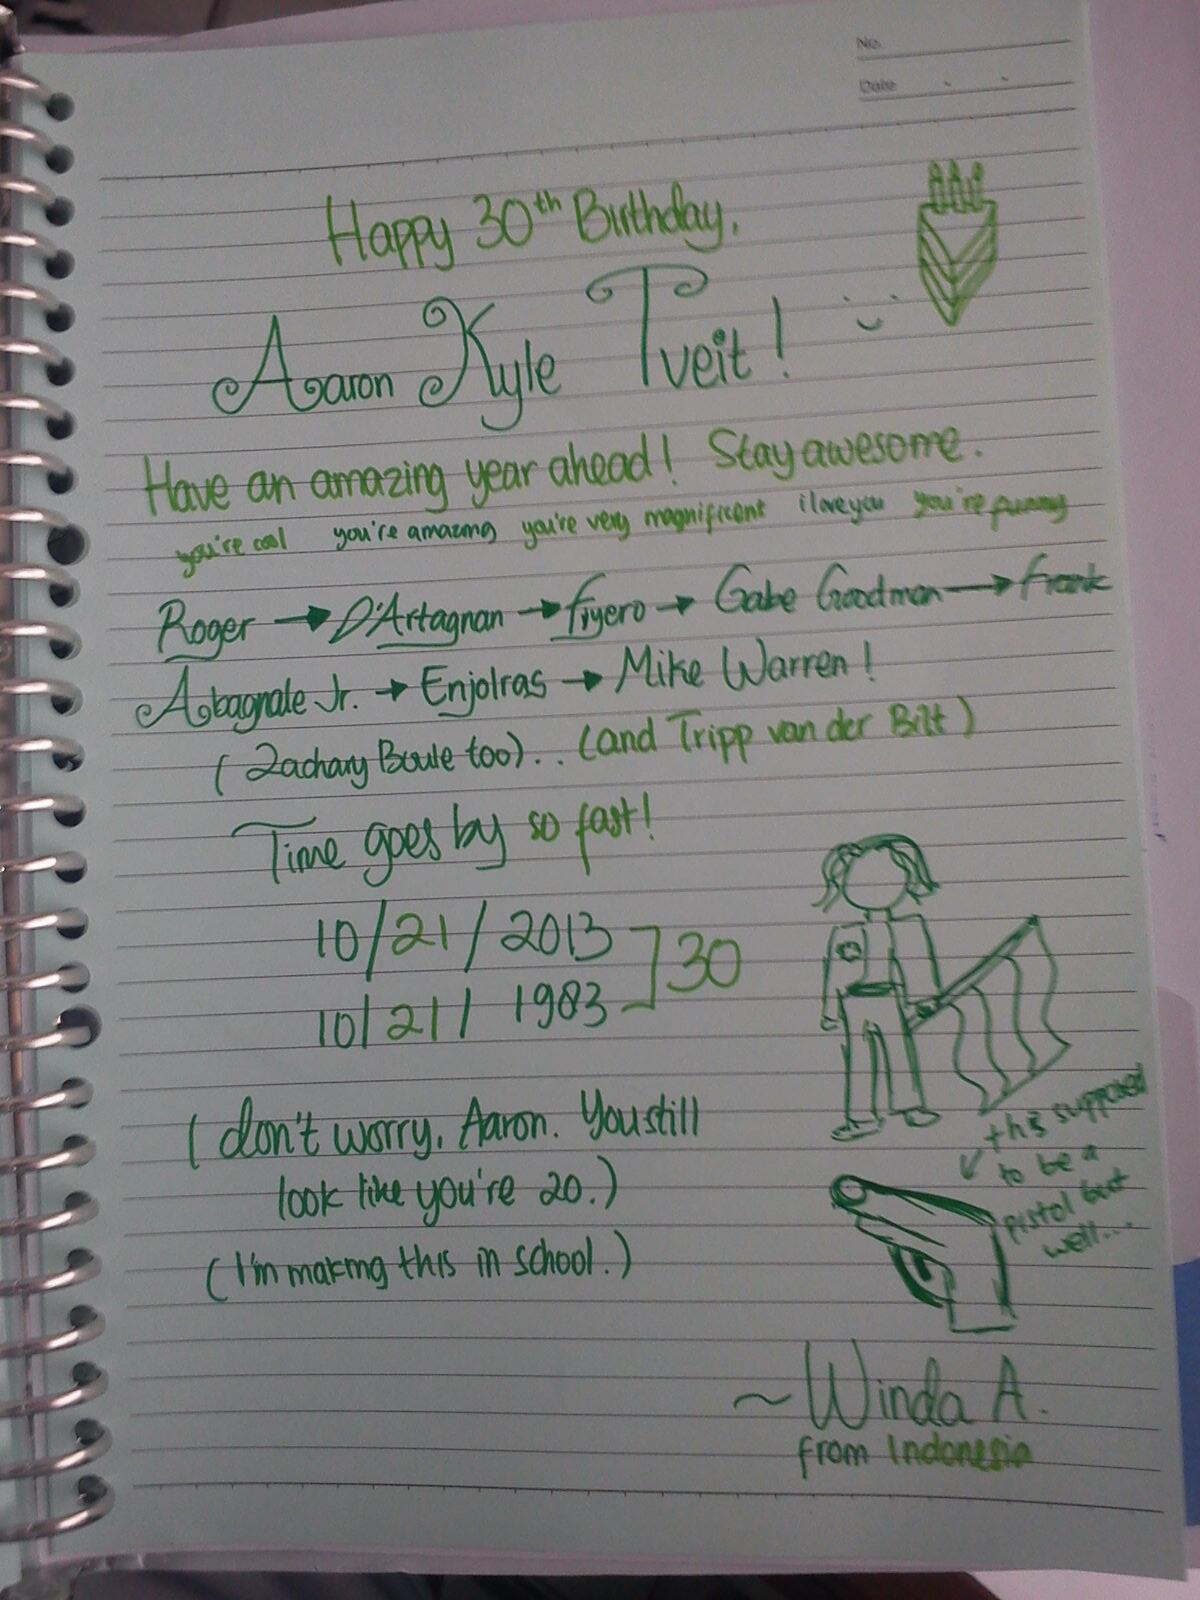 No.
Date
Happy 30th Birthday,
Aaron Kyle Tveit!
Have an amazing year ahead! Stay awesome.
you're cool you're amazing you're very magnificent i love you you're funny
Roger → D'Artagnan → Fiyero → Gabe Goodman → Frank
Abagnale Jr. → Enjolras → Mike Warren!
(Zachary Boule too). . (and Tripp van der Bilt)
Time goes by so fast!
10/21/2013
30
10/21/1983
(don't worry, Aaron. You still
look like you're 20.)
(I'm making this in school.)
this supposed
to be a
pistol but
well...
~ Winda A.
from Indonesia